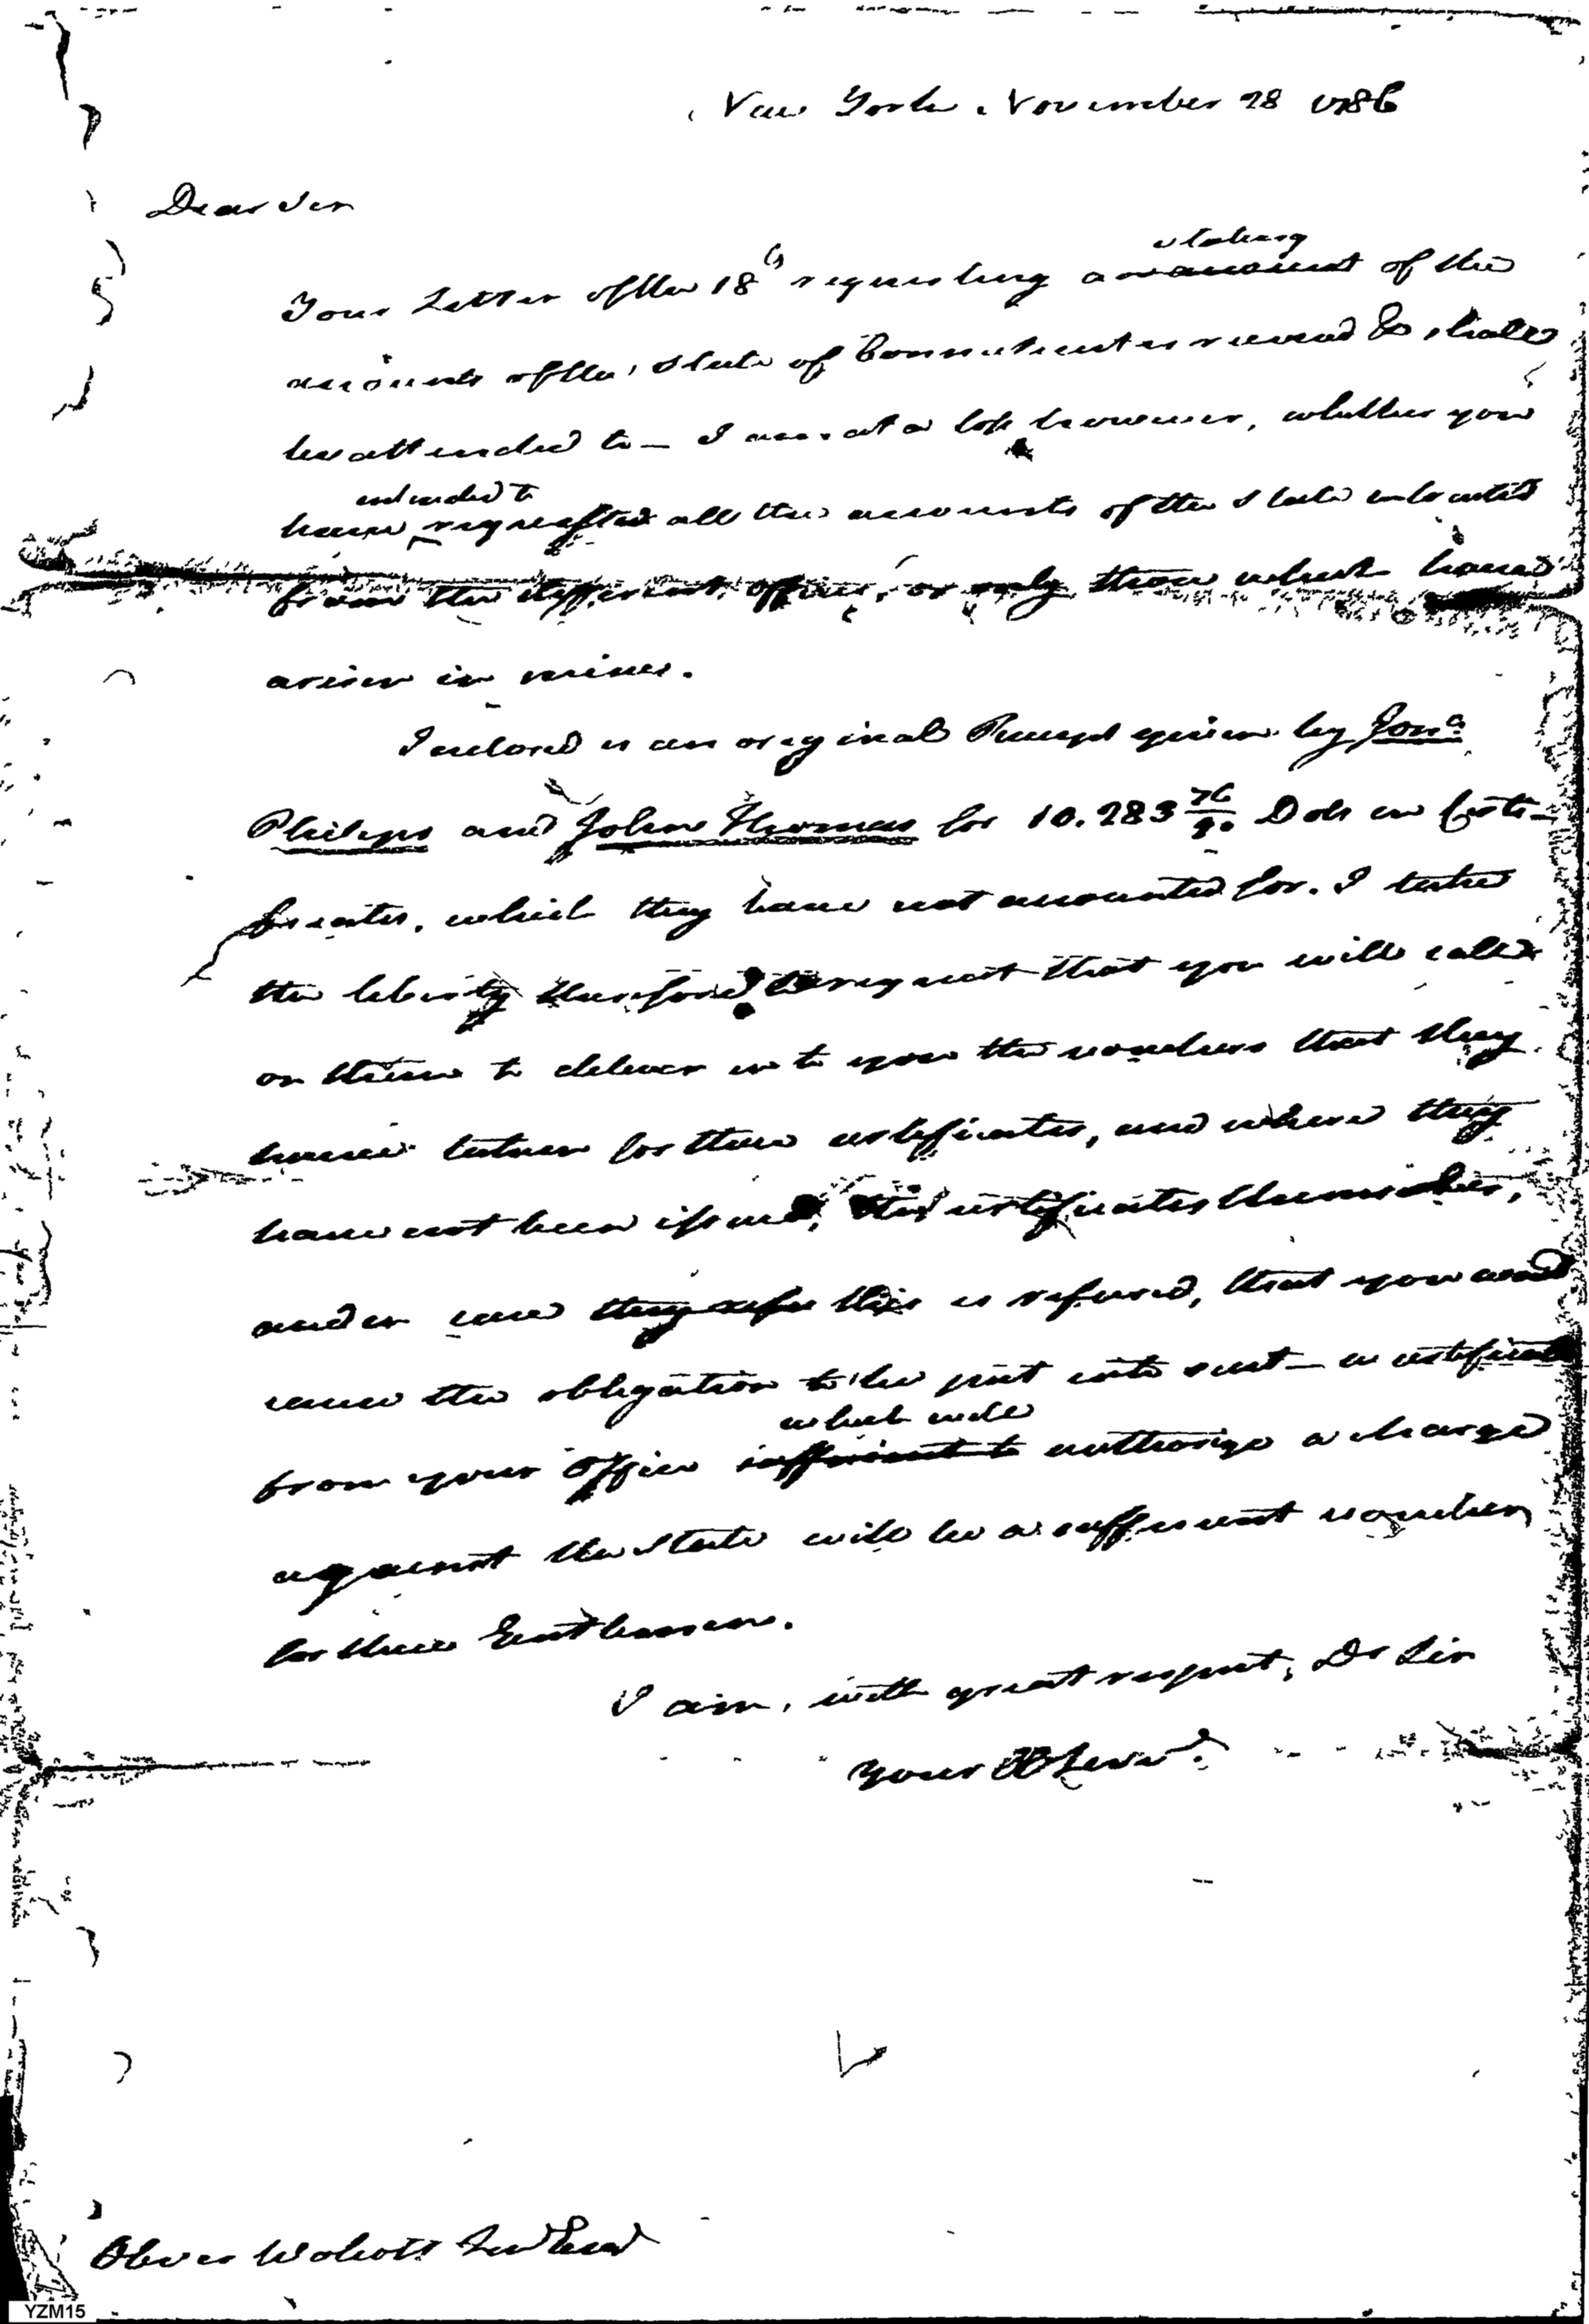 New York November 28 1786
Dear Sir
stating
Your Letter of the 18th requesting a account of the
accounts of the State of Connecticut is received & shall
be attended to — I am at a loss however, whether you
intended to
have requested all the accounts of the State extracted
from the different offices, or only those which have
arisen in mine.
Inclosed is an original Receipt given by Jona
Philips and John Thomas for 10.283 76/90 Dols in Certi-
ficates, which they have not accounted for. I take
the liberty therefore to request that you will call
on them to deliver in to you the vouchers that they
have taken for those certificates, and where they
have not been issued, the certificates themselves,
and in case they refu this is refused, that you will
cause the obligation to be put into suit — a certificate
which will
from your office sufficient to authorize a charge
against the State will be a sufficient voucher
for these Gentlemen.
I am, with great respect, Dr Sir
Your Servt.
Oliver Wolcott Jun Esqr
YZM15